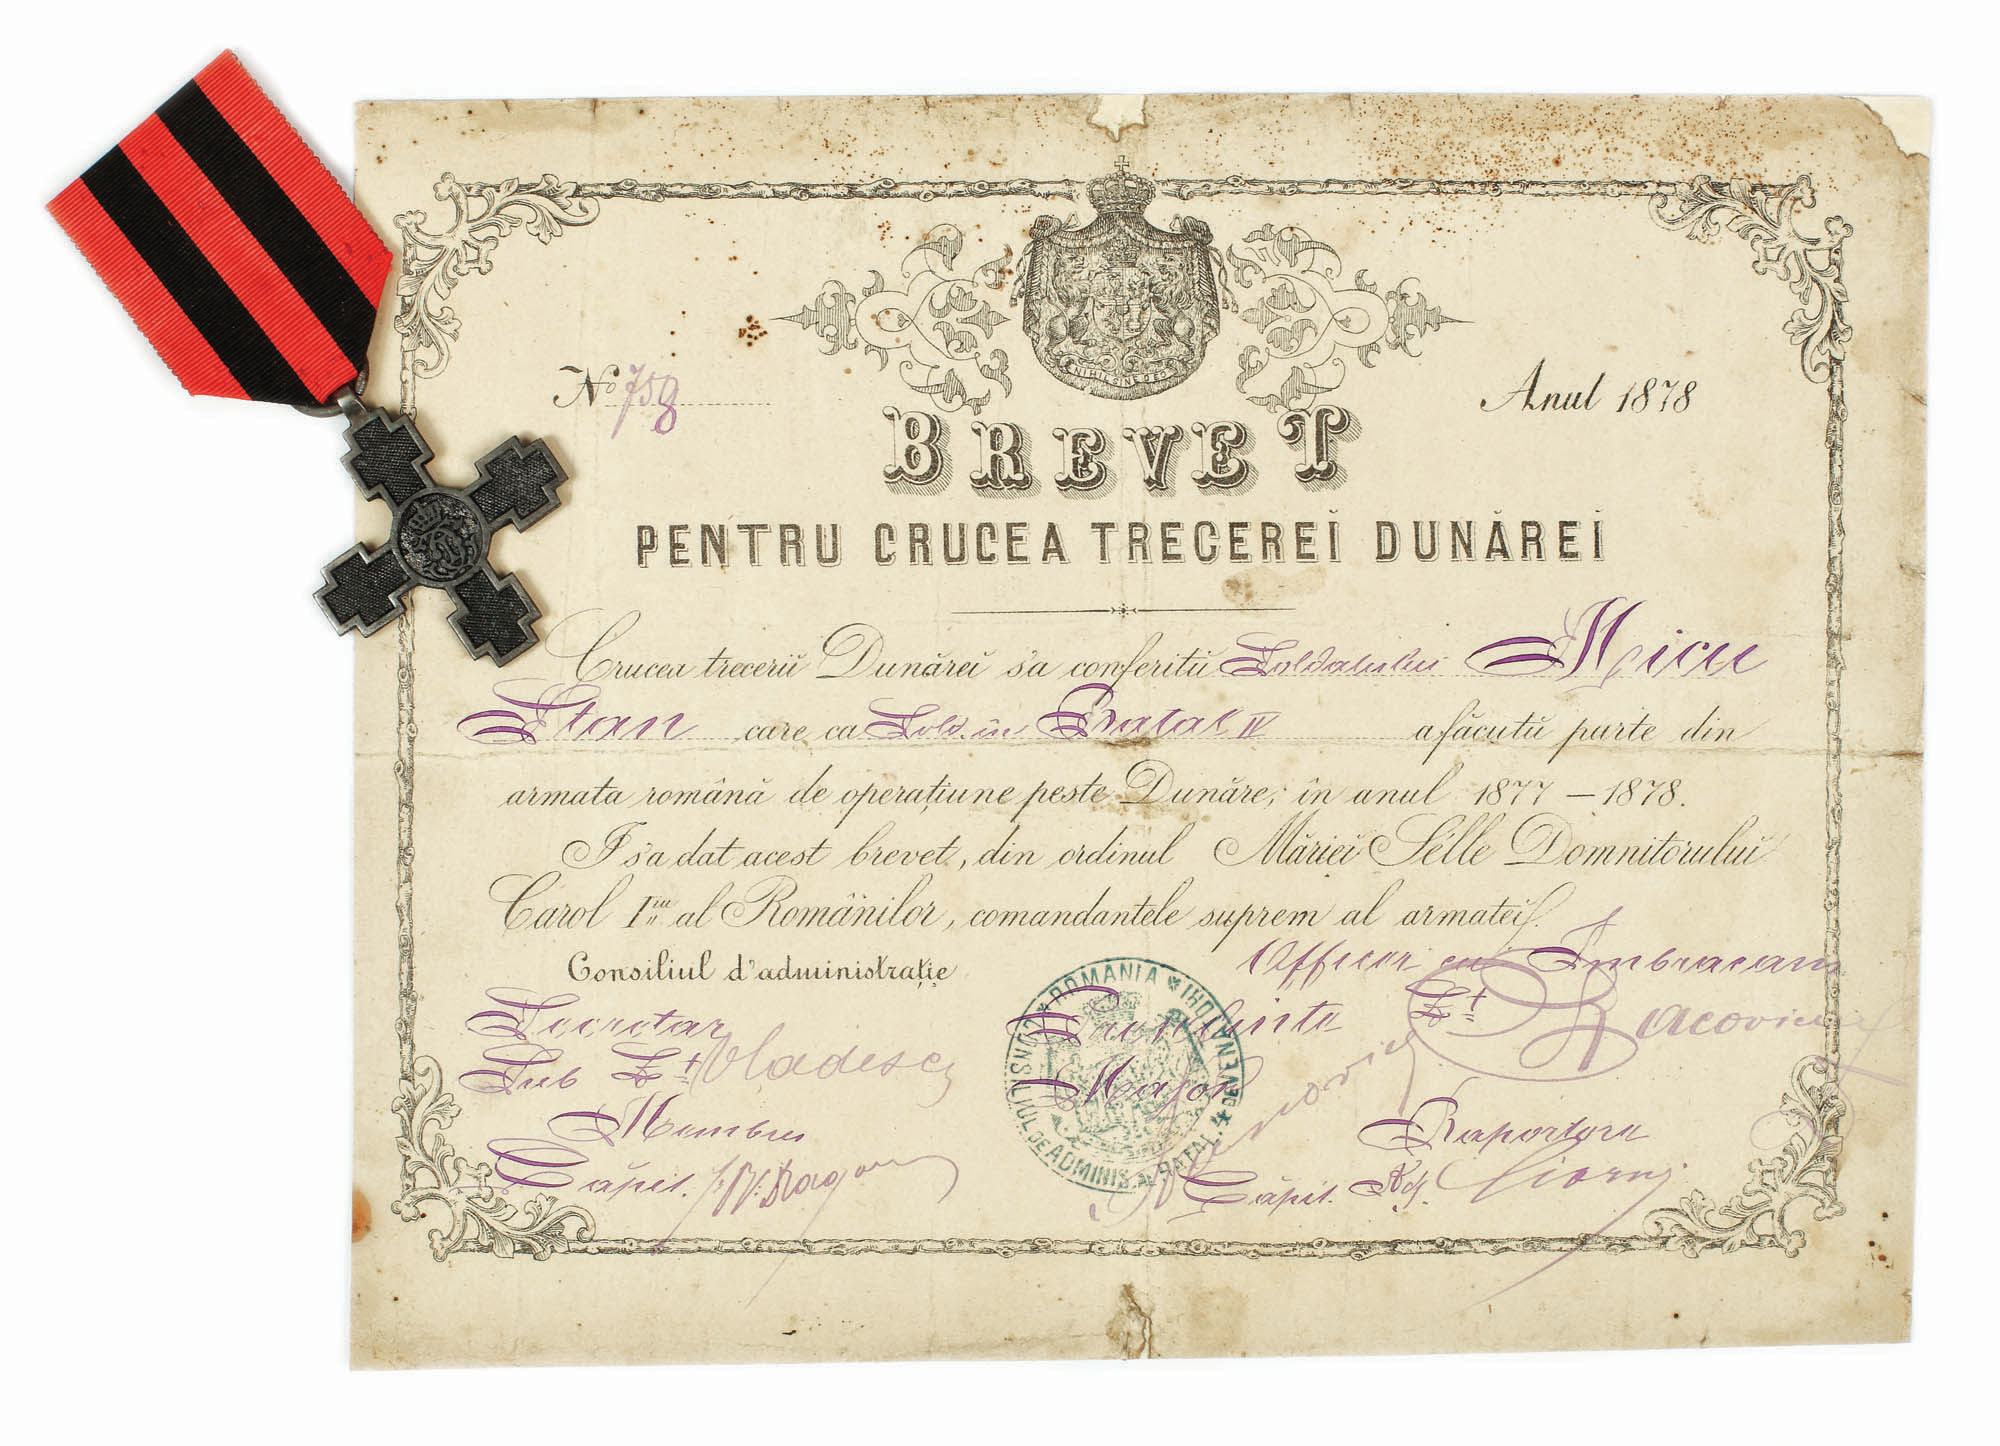 NIHIL SINE DEO
No 758
Anul 1878
BREVET
PENTRU CRUCEA TRECEREĬ DUNĂREĬ
Crucea treceriĭ Dunăreĭ s'a conferitŭ Soldatului Nicu
Stan care ca Sold. in Batal IV a făcutŭ parte din
armata română de operațiune peste Dunăre, în anul 1877 – 1878.
I s'a dat acest brevet, din ordinul Măriei Sélle Domnitoruluĭ
Carol I al Românilor, comandantele suprem al armateĭ.
Consiliul d'administrație
Officer cu Imbracam
Secretar
Presedinte
Lt Racovici
Sub Lt Vladescu
Major
Membru
Raportoru
Căpit.
Căpit.
ROMANIA
CONSILIUL DE ADMINIS. A BATAL.